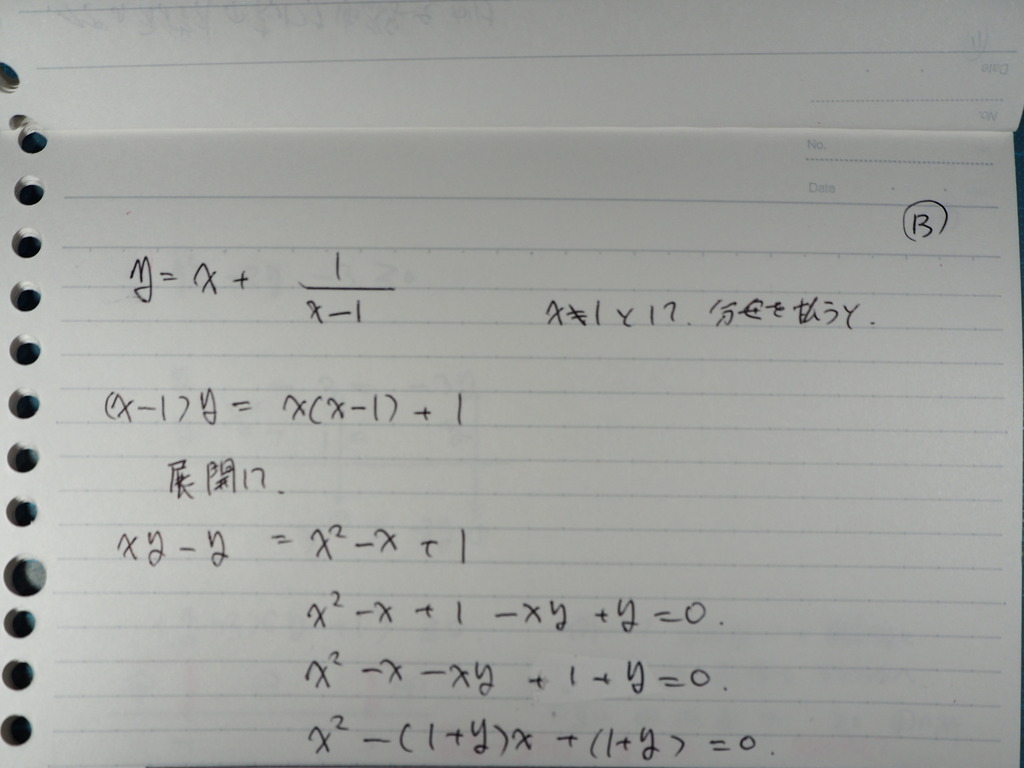 No.
Date
Ⓑ
y = x + 1/(x-1)
x≠1として. 分母を払うと.
(x-1)y = x(x-1) + 1
展開して.
xy - y = x² - x + 1
x² - x + 1 - xy + y = 0.
x² - x - xy + 1 + y = 0.
x² - (1+y)x + (1+y) = 0.